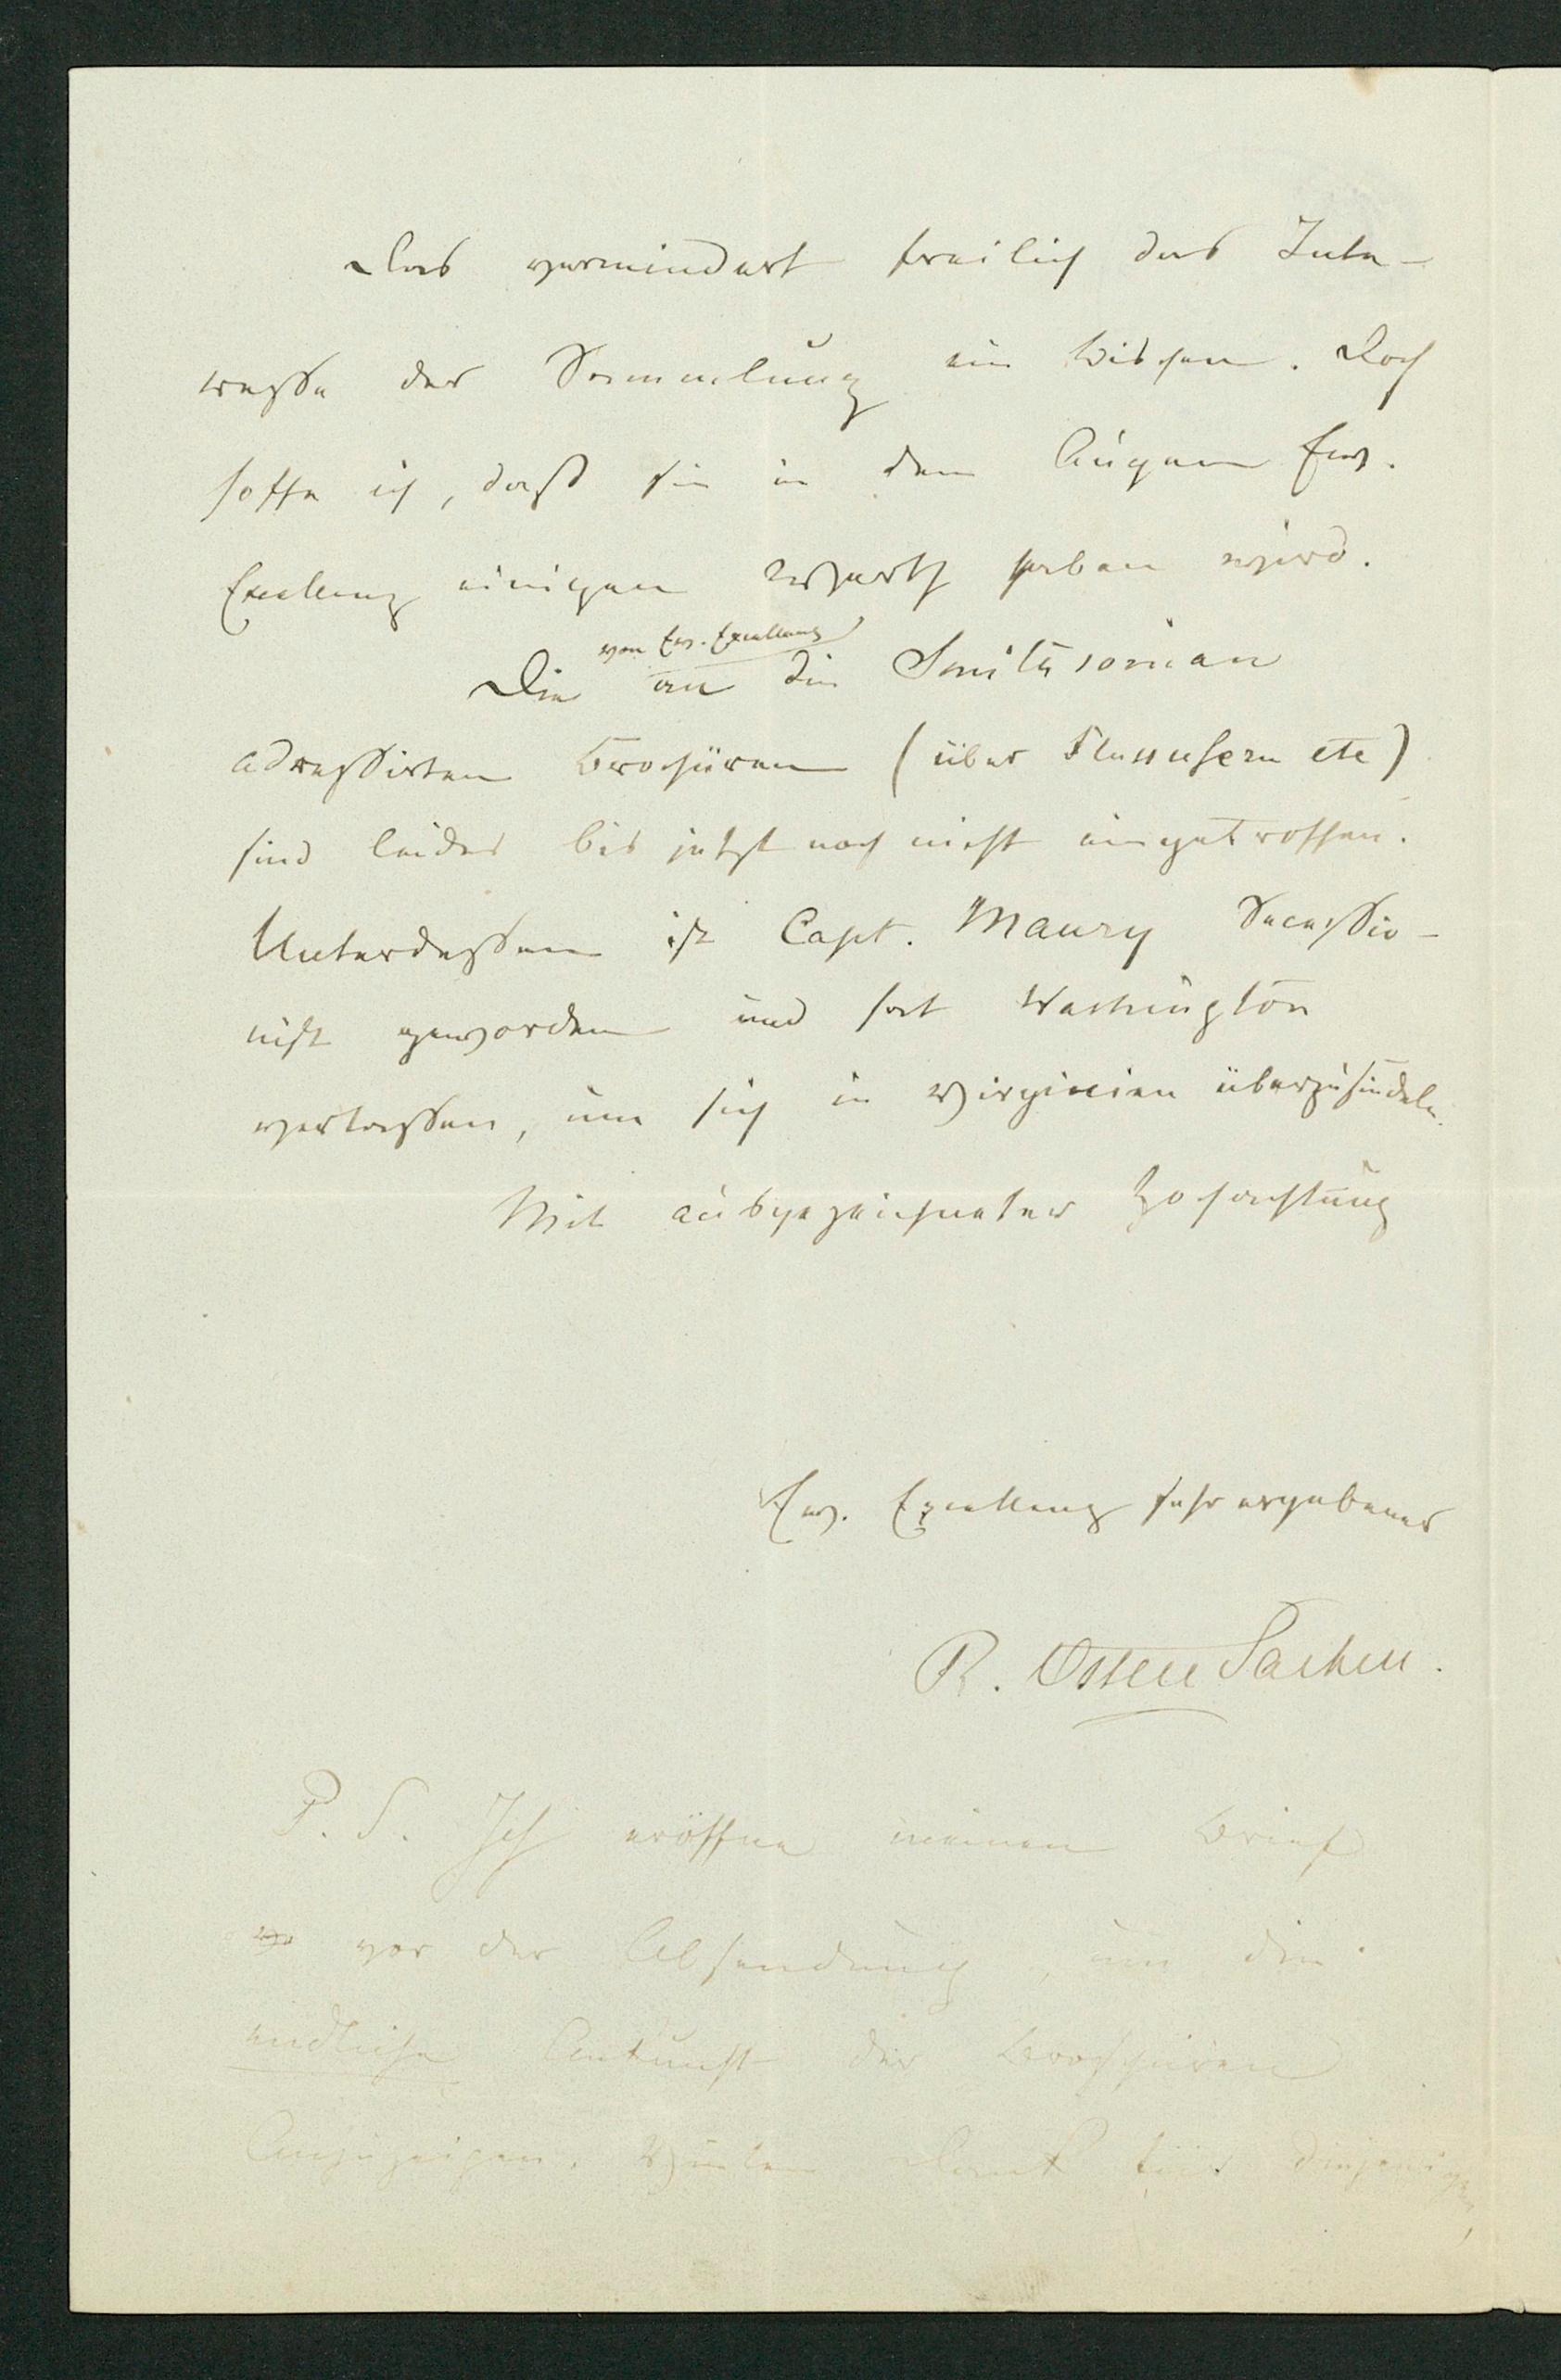 Das vermindert freilich das Inte-
resse der Sammlung ein bischen. Doch
hoffe ich, daß sie in den Augen Ew.
Excellenz einigen Werth haben wird.
von Ew. Excellenz
Die an die Smithsonian
adressirten Brochüren (über Flussufern etc)
sind leider bis jetzt noch nicht eingetroffen.
Unterdessen ist Capt. Maury Secessio-
nist geworden und hat Washington
verlassen, um sich in Virginien überzusiedeln.
Mit ausgezeichneter Hochachtung
Ew. Excellenz sehr ergebener
R. Osten Sacken.
P. S. Ich eröffne meinen Brief
vor der Absendung, um die
endliche Ankunft der Brochüren
Anzuzeigen. Vielen Dank für diejenigen,